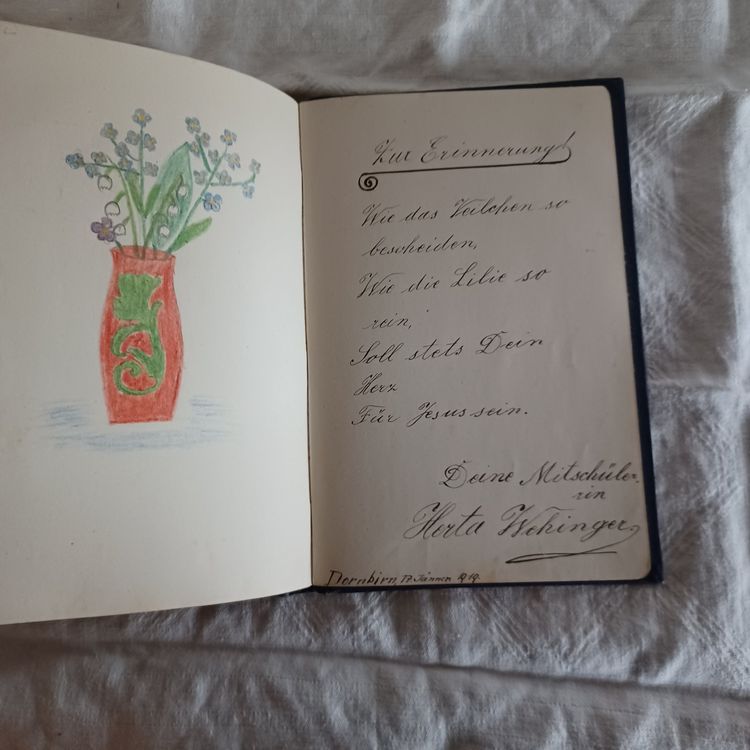 Zur Erinnerung!
Wie das Veilchen so
bescheiden,
Wie die Lilie so
rein,
Soll stets Dein
Herz
Für Jesus sein.
Deine Mitschüler-
rin
Herta Wehinger
Dornbirn, 17. Jänner